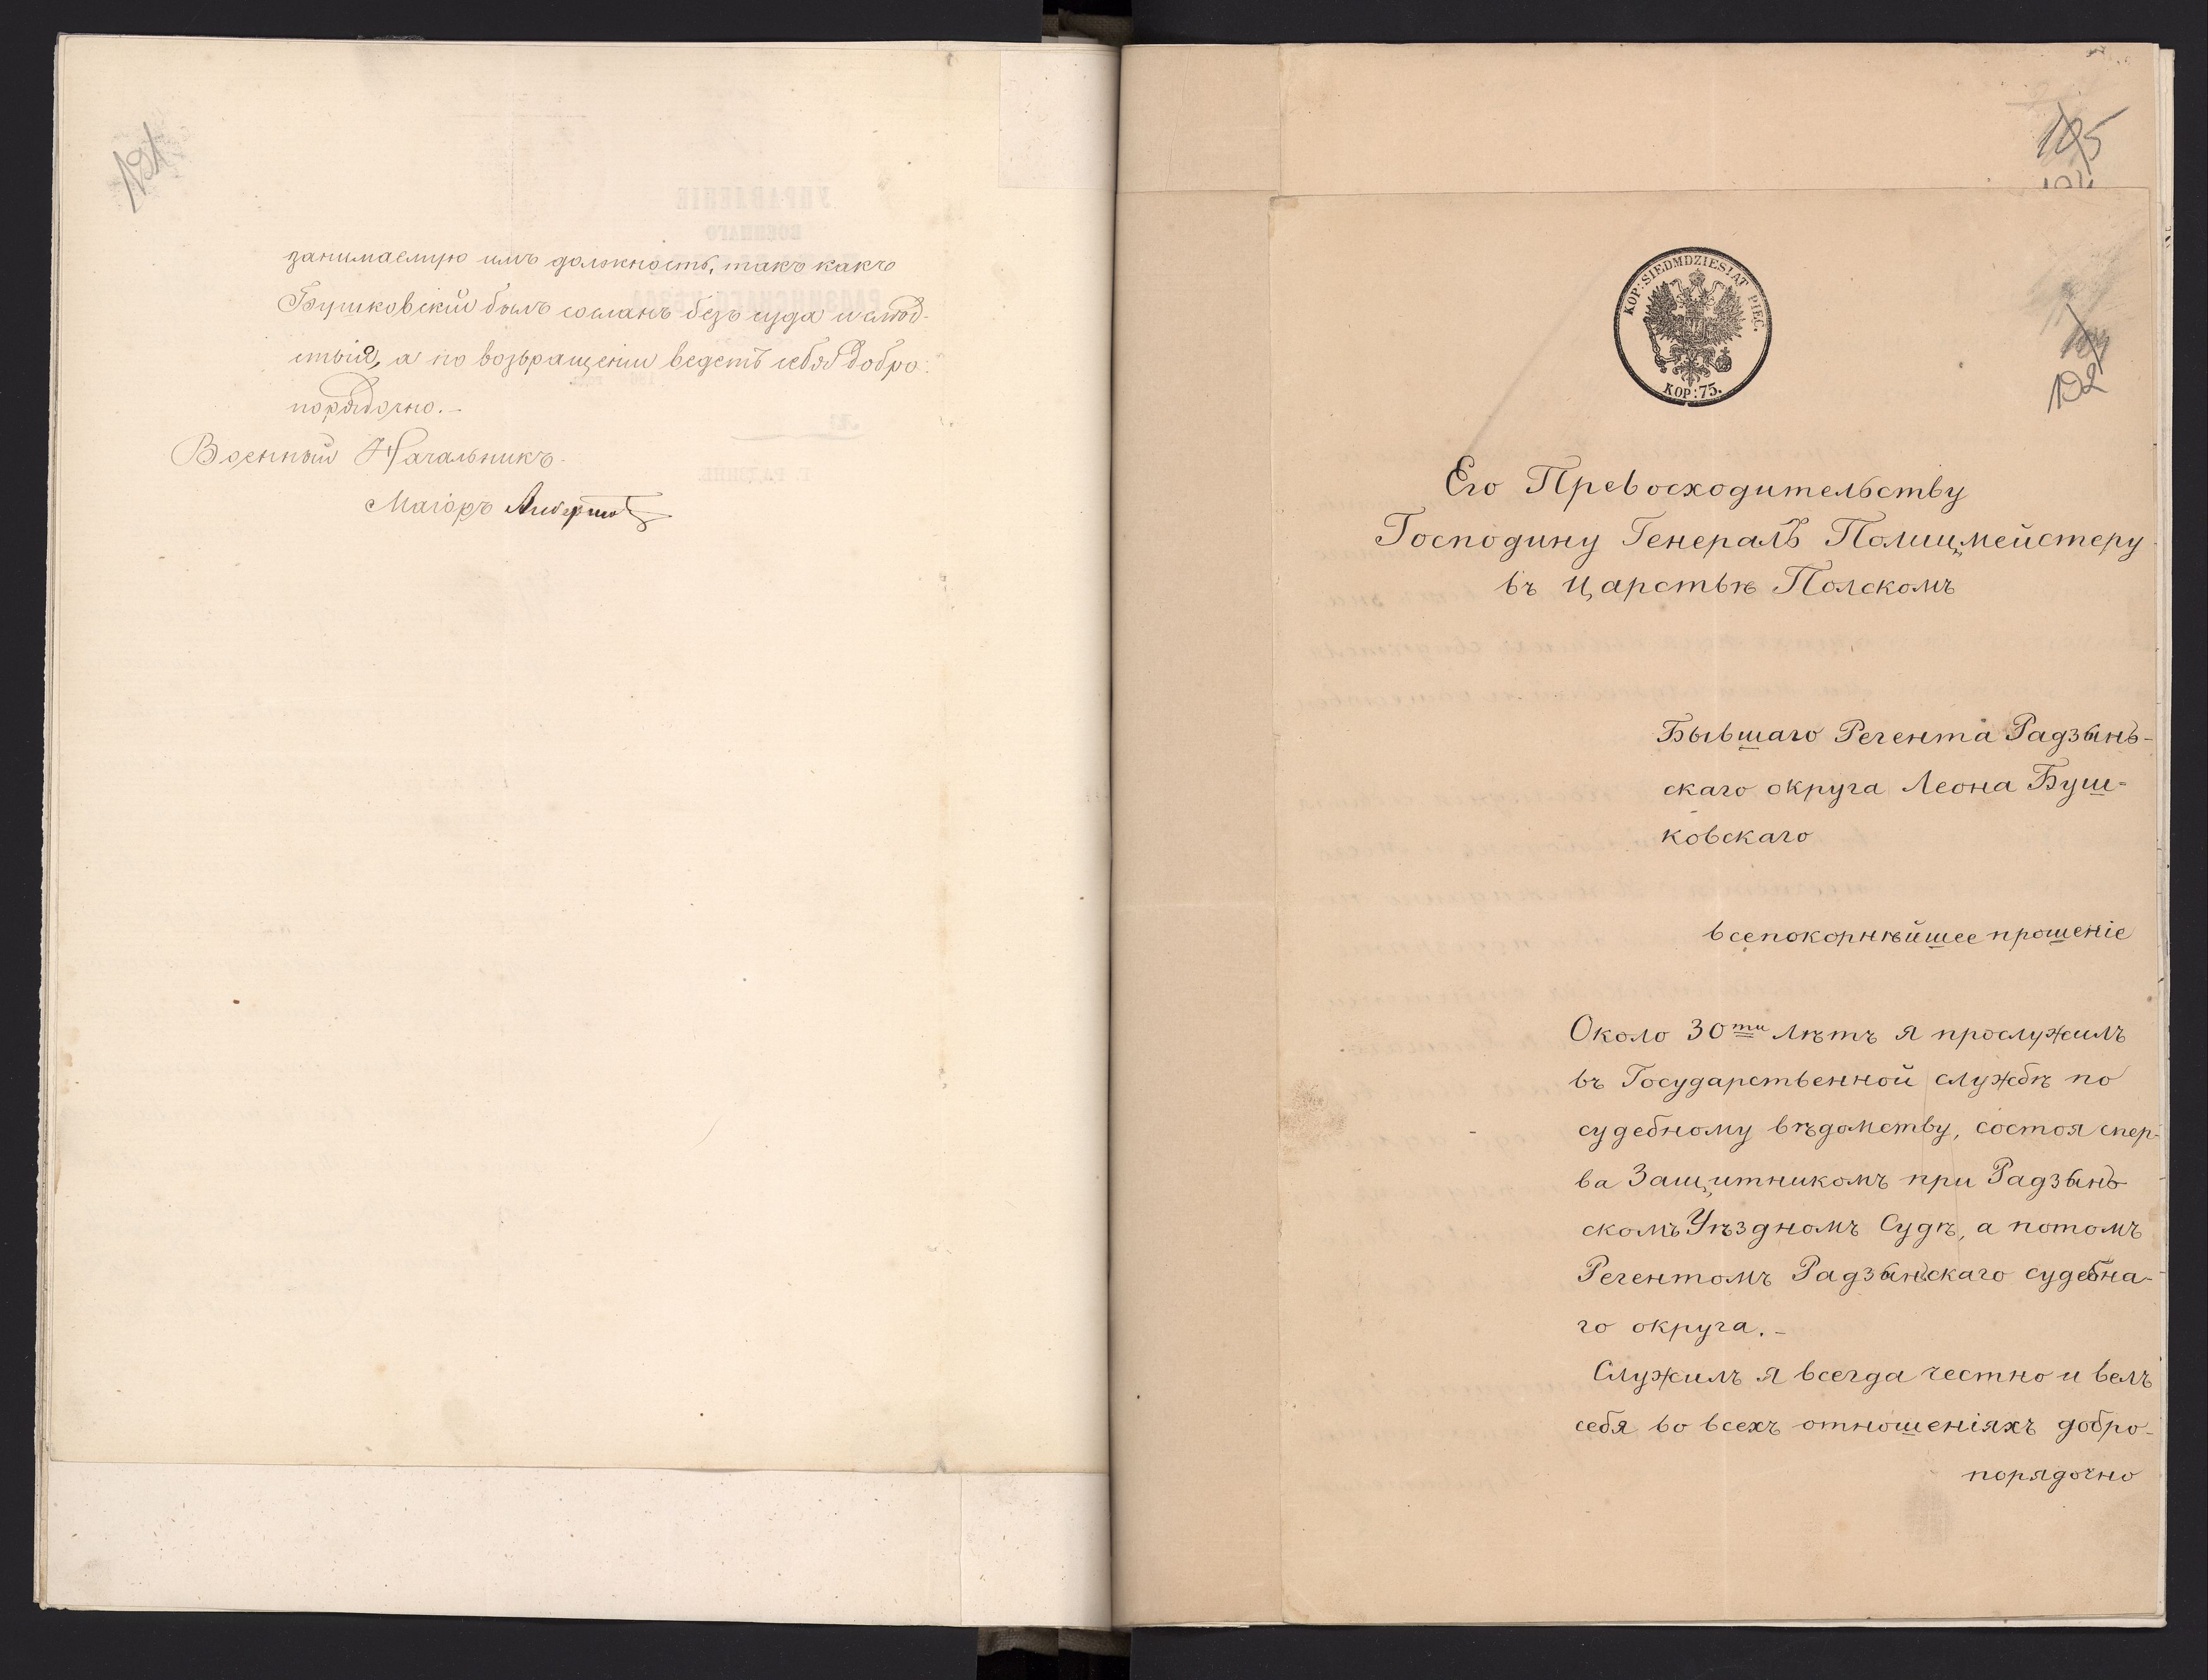 191
занимаемую имъ должность, такъ какъ
Бушковскій былъ сосланъ безъ суда и слѣд-
ствія, а по возвращеніи ведетъ себя добро-
порядочно.-
Военный Начальникъ
Маіоръ
195
KOP: SIEDMDZIESIĄT PIĘC.
KOP: 75.
192
Его Превосходительству
Господину Генералъ Полицмейстеру
въ Царствѣ Полскомъ
Бывшаго Регента Радзынь-
скаго округа Леона Буш-
ковскаго
всепокорнѣйшее прошеніе
Около 30ти лѣтъ я прослужилъ
въ Государственной службѣ по
судебному вѣдомству, состоя спер-
ва Защитникомъ при Радзынь
скомъ Уѣздномъ Судѣ, а потомъ
Регентомъ Радзыньскаго судебна-
го округа.-
Служилъ я всегда честно и велъ
себя во всехъ отношеніяхъ добро-
порядочно